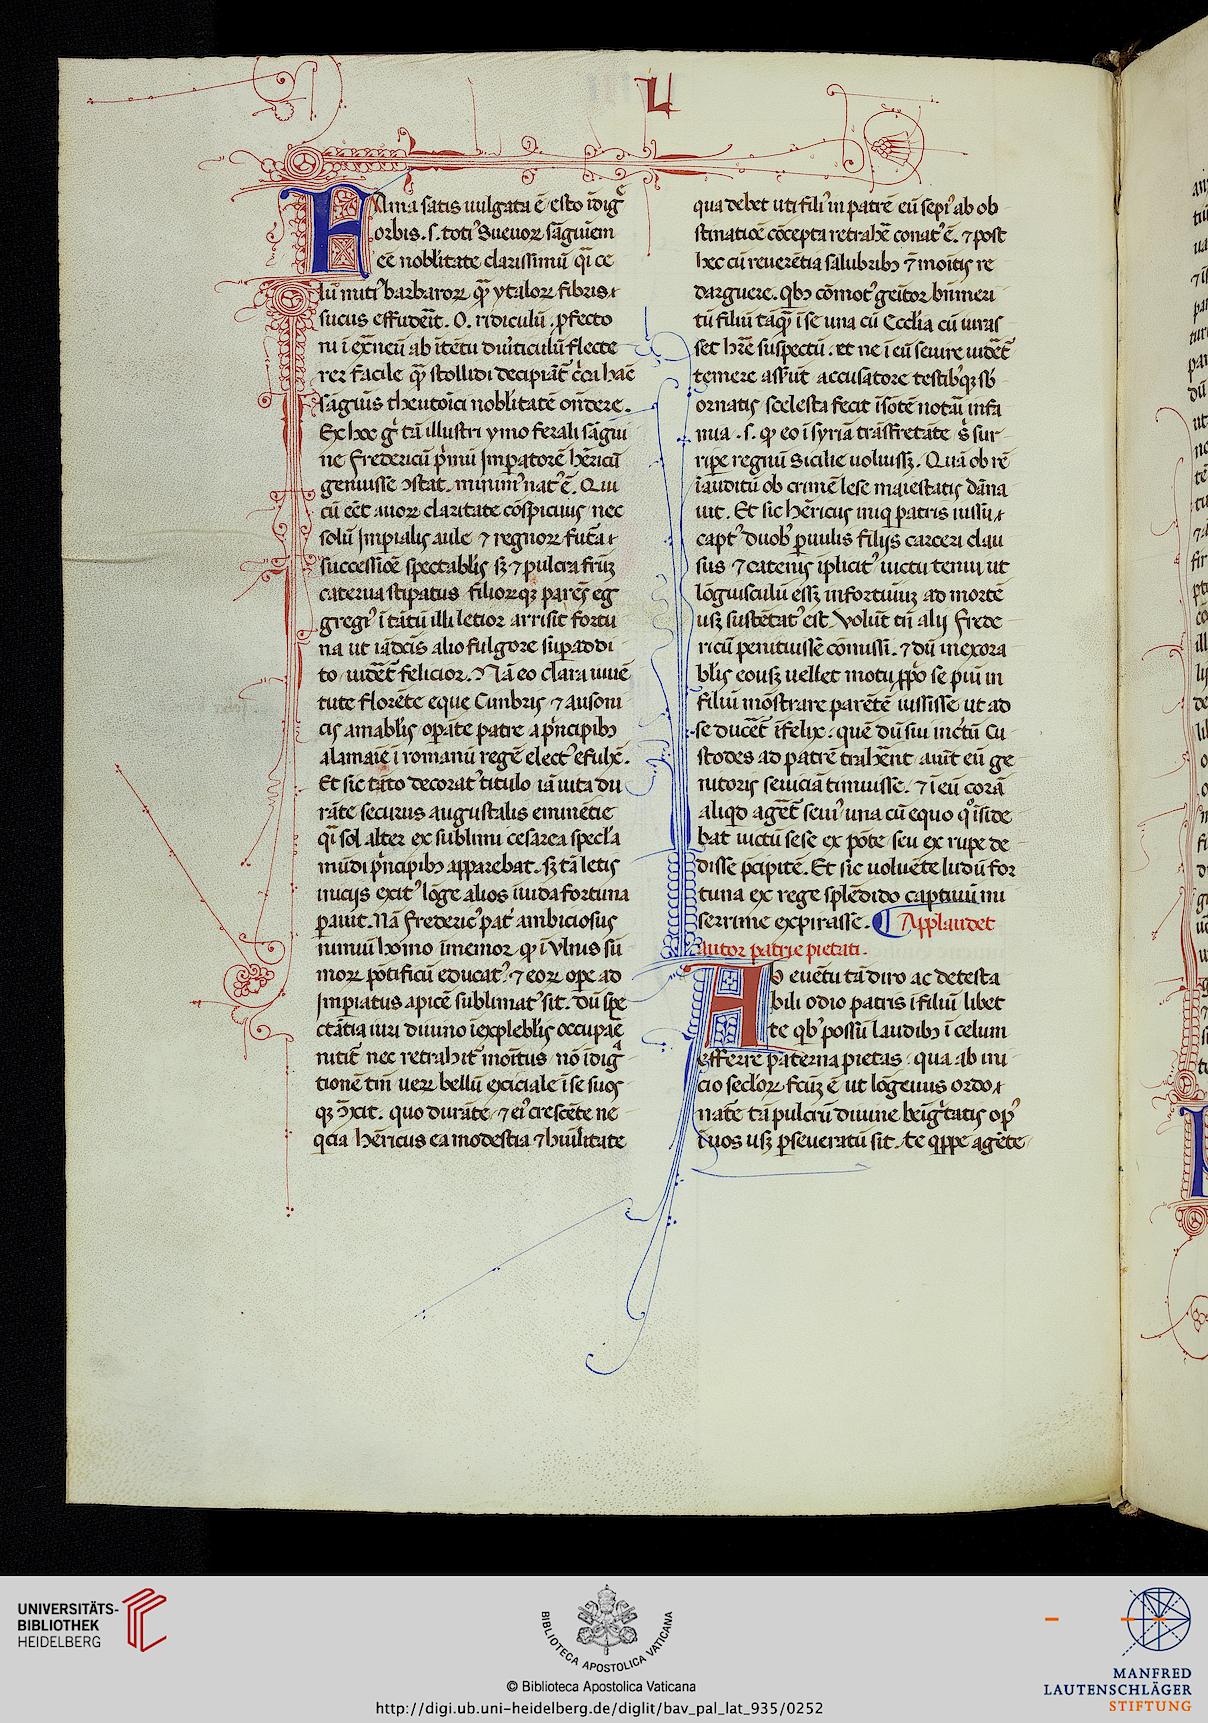 L
Fama satis uulgata ē esto īdigͣ
orbis. s. toti⁹ Sueuoꝝ sāguiem
eē nobilitate clarissimū qͥ ce
lū miti⁹ barbaroꝝ qͣꝫ ytaloꝝ fibris
sucus effuderit. O. ridiculū. ꝓfecto
ni ī exͣneū ab ītētū diuiticulū flecte
rer facile qͣꝫ stollidi decipiāt͛ hāc
sāgius theutoīci nobilitatē ondere.
Ex hoc gͥ tā illustri ymo ferali sāgui
ne Fredericū pͥmū Imꝑatorē hēricū
genuisse ꝯstat. minim⁹ nat⁹ ē. Qui
cū eēt auoꝝ claritate cōspicuus nec
solū Imꝑialis aule ⁊ regnoꝝ futͣa
successiōe spectabilis sꝫ ⁊ pulcra frūꝫ
caterua stipatus filioꝝqꝫ parēs eg
gregi⁹ ī tātū illi letior arrisit fortu
na ut iādcīs alio fulgore suꝑaddi
to uideret͛ felicior. Nā eo clara iuuē
tute florēte eque Cimbris ⁊ ausoni
cis amabilis oꝑāte patre a pͥncipibꝫ
alamaīe ī romanū regē elect⁹ efuīt.
Et sic tāto decorat⁹ titulo iā uita du
rāte securus augustalis eminētie
qͣi sol alter ex sublimi cesarea specla
mūdi pͥncipibꝫ apparebat. sꝫ tā letis
inicijs exit⁹ lōge alios īuida fortuna
ꝑauit. Nā Frederic⁹ pat͛ ambiciosus
nimiū homo īmemor qꝫ ī ulnis sū
moꝝ pōtificū educat⁹ ⁊ eoꝝ ope ad
Imꝑiatus apicē sublimat⁹ sit. dū spe
ctātia iuri diuino īexplebilis occupaē
nitit͛ nec retrahit͛ moītus nō īdigͣ
tionē tm̄ ueꝝ bellū exiciale ī se suos
qꝫ ꝯ̄xcit. quo durāte ⁊ ei⁹ crescēte ne
qcia hēricus ea modestia ⁊ huīlitate
qua debet uti fili⁹ in patrē eū sepi⁹ ab ob
stinatiōe cōcepta retrahē conat⁹ ē. ⁊ post
hec cū reuerētia salubribꝫ ⁊ moītis re
darguere. qbꝫ cōmot⁹ geītor bn̄meri
tū filiū tāqͣꝫ ī se una cū Ecclīa cū iuras
set hr̄e suspectū. et ne ī eū seuire uideret͛
temere assūt accusatore testibꝫqꝫ sb
ornatis scelesta fecit īsōtē notāī infa
mia. s. qꝫ eo ī syriā trāsfretāte s͛ sur
ripe regnū Sicilie uoluissꝫ. Quā ob rē
īauditū ob crimē lese maiestatis dāna
uit. Et sic hēricus iniq patris iussu
capt⁹ duob⁹ ꝑuulis filijs carceri clau
sus ⁊ catenis īplicit⁹ uictu tenui ut
lōguisculū essꝫ infortuniū ad mortē
usꝫ sustētat⁹ est. Volūt tn̄ alij Frede
ricū penituissē cōmissi. ⁊ dū inexora
bilis eousꝫ uellet motu ꝓpͥo se piū in
filiū mōstrare parētē iussisse ut ad
se duceret͛ īfelix: quē dū sui īnctū Cu
stodes ad patrē traherent aiūt eū ge
nitoris seuiciā timuisse. ⁊ ī eū corā
aliqd ageret͛ seui⁹ una cū equo qͦ īside
bat uictū sese ex pōte seu ex rupe de
disse p̄cipitē. Et sic uoluēte ludū for
tuna ex rege splēdido captiuū mi
serrime expirasse. Applaudet
autor patrie pietati.
Ab euētu tā diro ac detesta
bili odio patris ī filiū libet
te qb⁹ possū laudibꝫ ī celum
efferre paterna pietas. qua ab ini
cio secloꝝ fcūꝫ ē ut lōgeuus ordo
nate tā pulcrū diuine beigͥtatis op⁹
ī uos usꝫ ꝑseueratū sit. te qppe agēte
UNIVERSITÄTS-
BIBLIOTHEK
HEIDELBERG
BIBLIOTECA APOSTOLICA VATICANA
© Biblioteca Apostolica Vaticana
http://digi.ub.uni-heidelberg.de/diglit/bav_pal_lat_935/0252
MANFRED
LAUTENSCHLÄGER
STIFTUNG